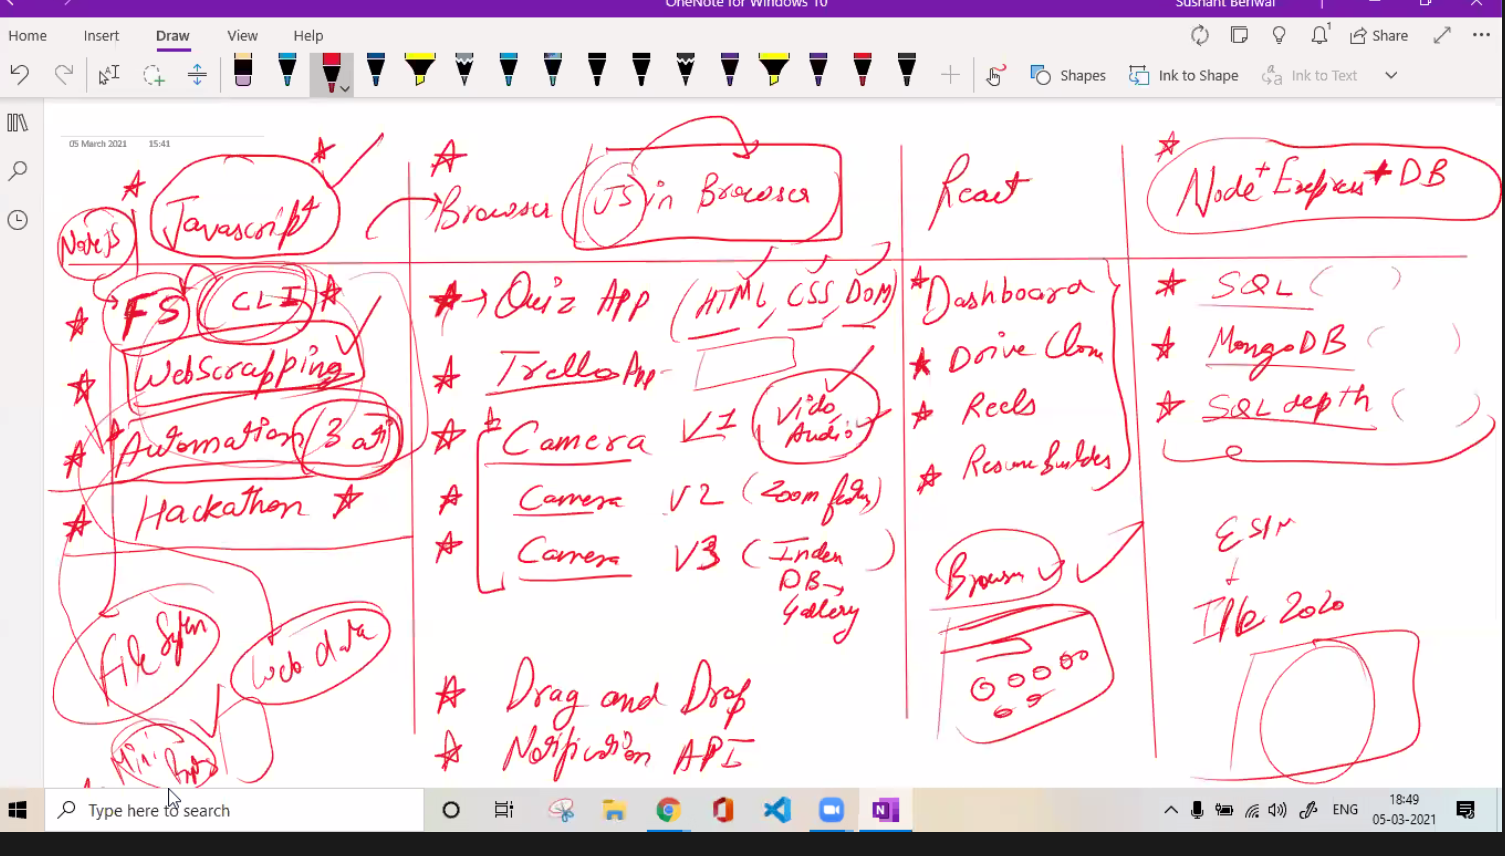 OneNote for Windows 10
Sushant Beriwal
Home Insert Draw View Help
Share
Shapes Ink to Shape Ink to Text
05 March 2021 15:41
Javascript
NodeJS
FS CLI
WebScrapping
Automation (3 ati)
Hackathon
File System
Web data
Mini
Browser (JS in Browser
Quiz App (HTML, CSS, DOM)
Trello App
Camera V1 Vido Audio
Camera V2 (Zoom
Camera V3 (Index DB
Gallery
Drag and Drop
Notification API
React
Dashboard
Drive Clone
Reels
Resume Builder
Browser
Node + Express + DB
SQL ( )
MongoDB ( )
SQL depth ( )
2020
Type here to search
ENG
18:49
05-03-2021